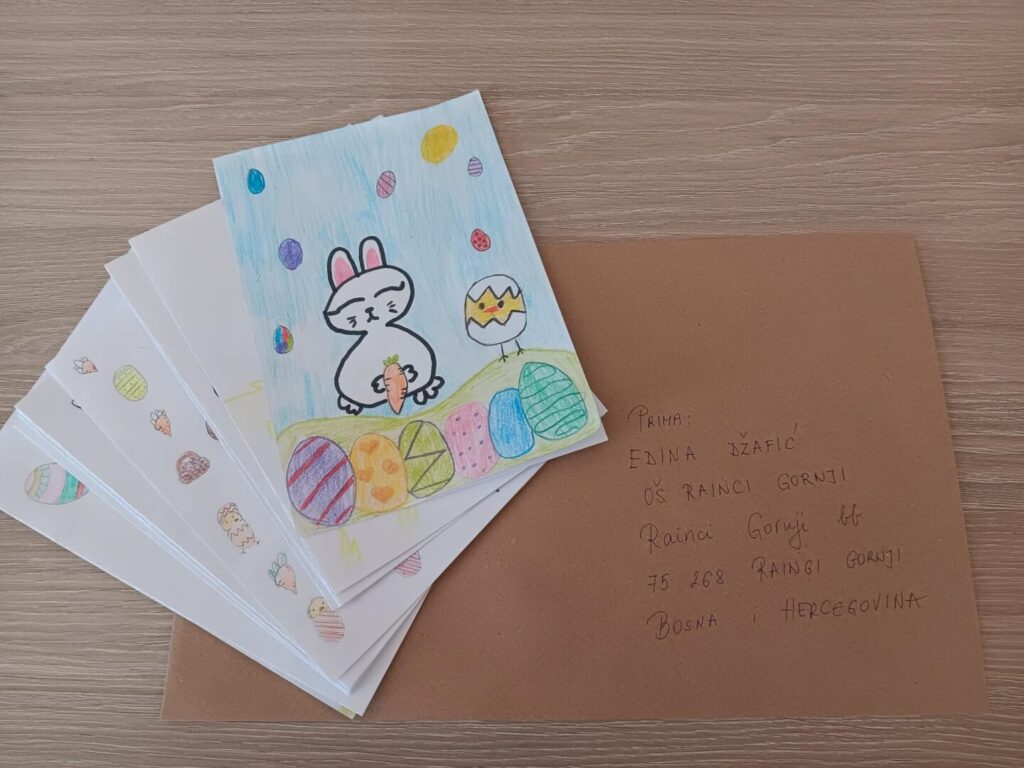 PRIMA:
EDINA DŽAFIĆ
OŠ RAINCI GORNJI
Rainci Gornji bb
75 268 RAINCI GORNJI
BOSNA i HERCEGOVINA